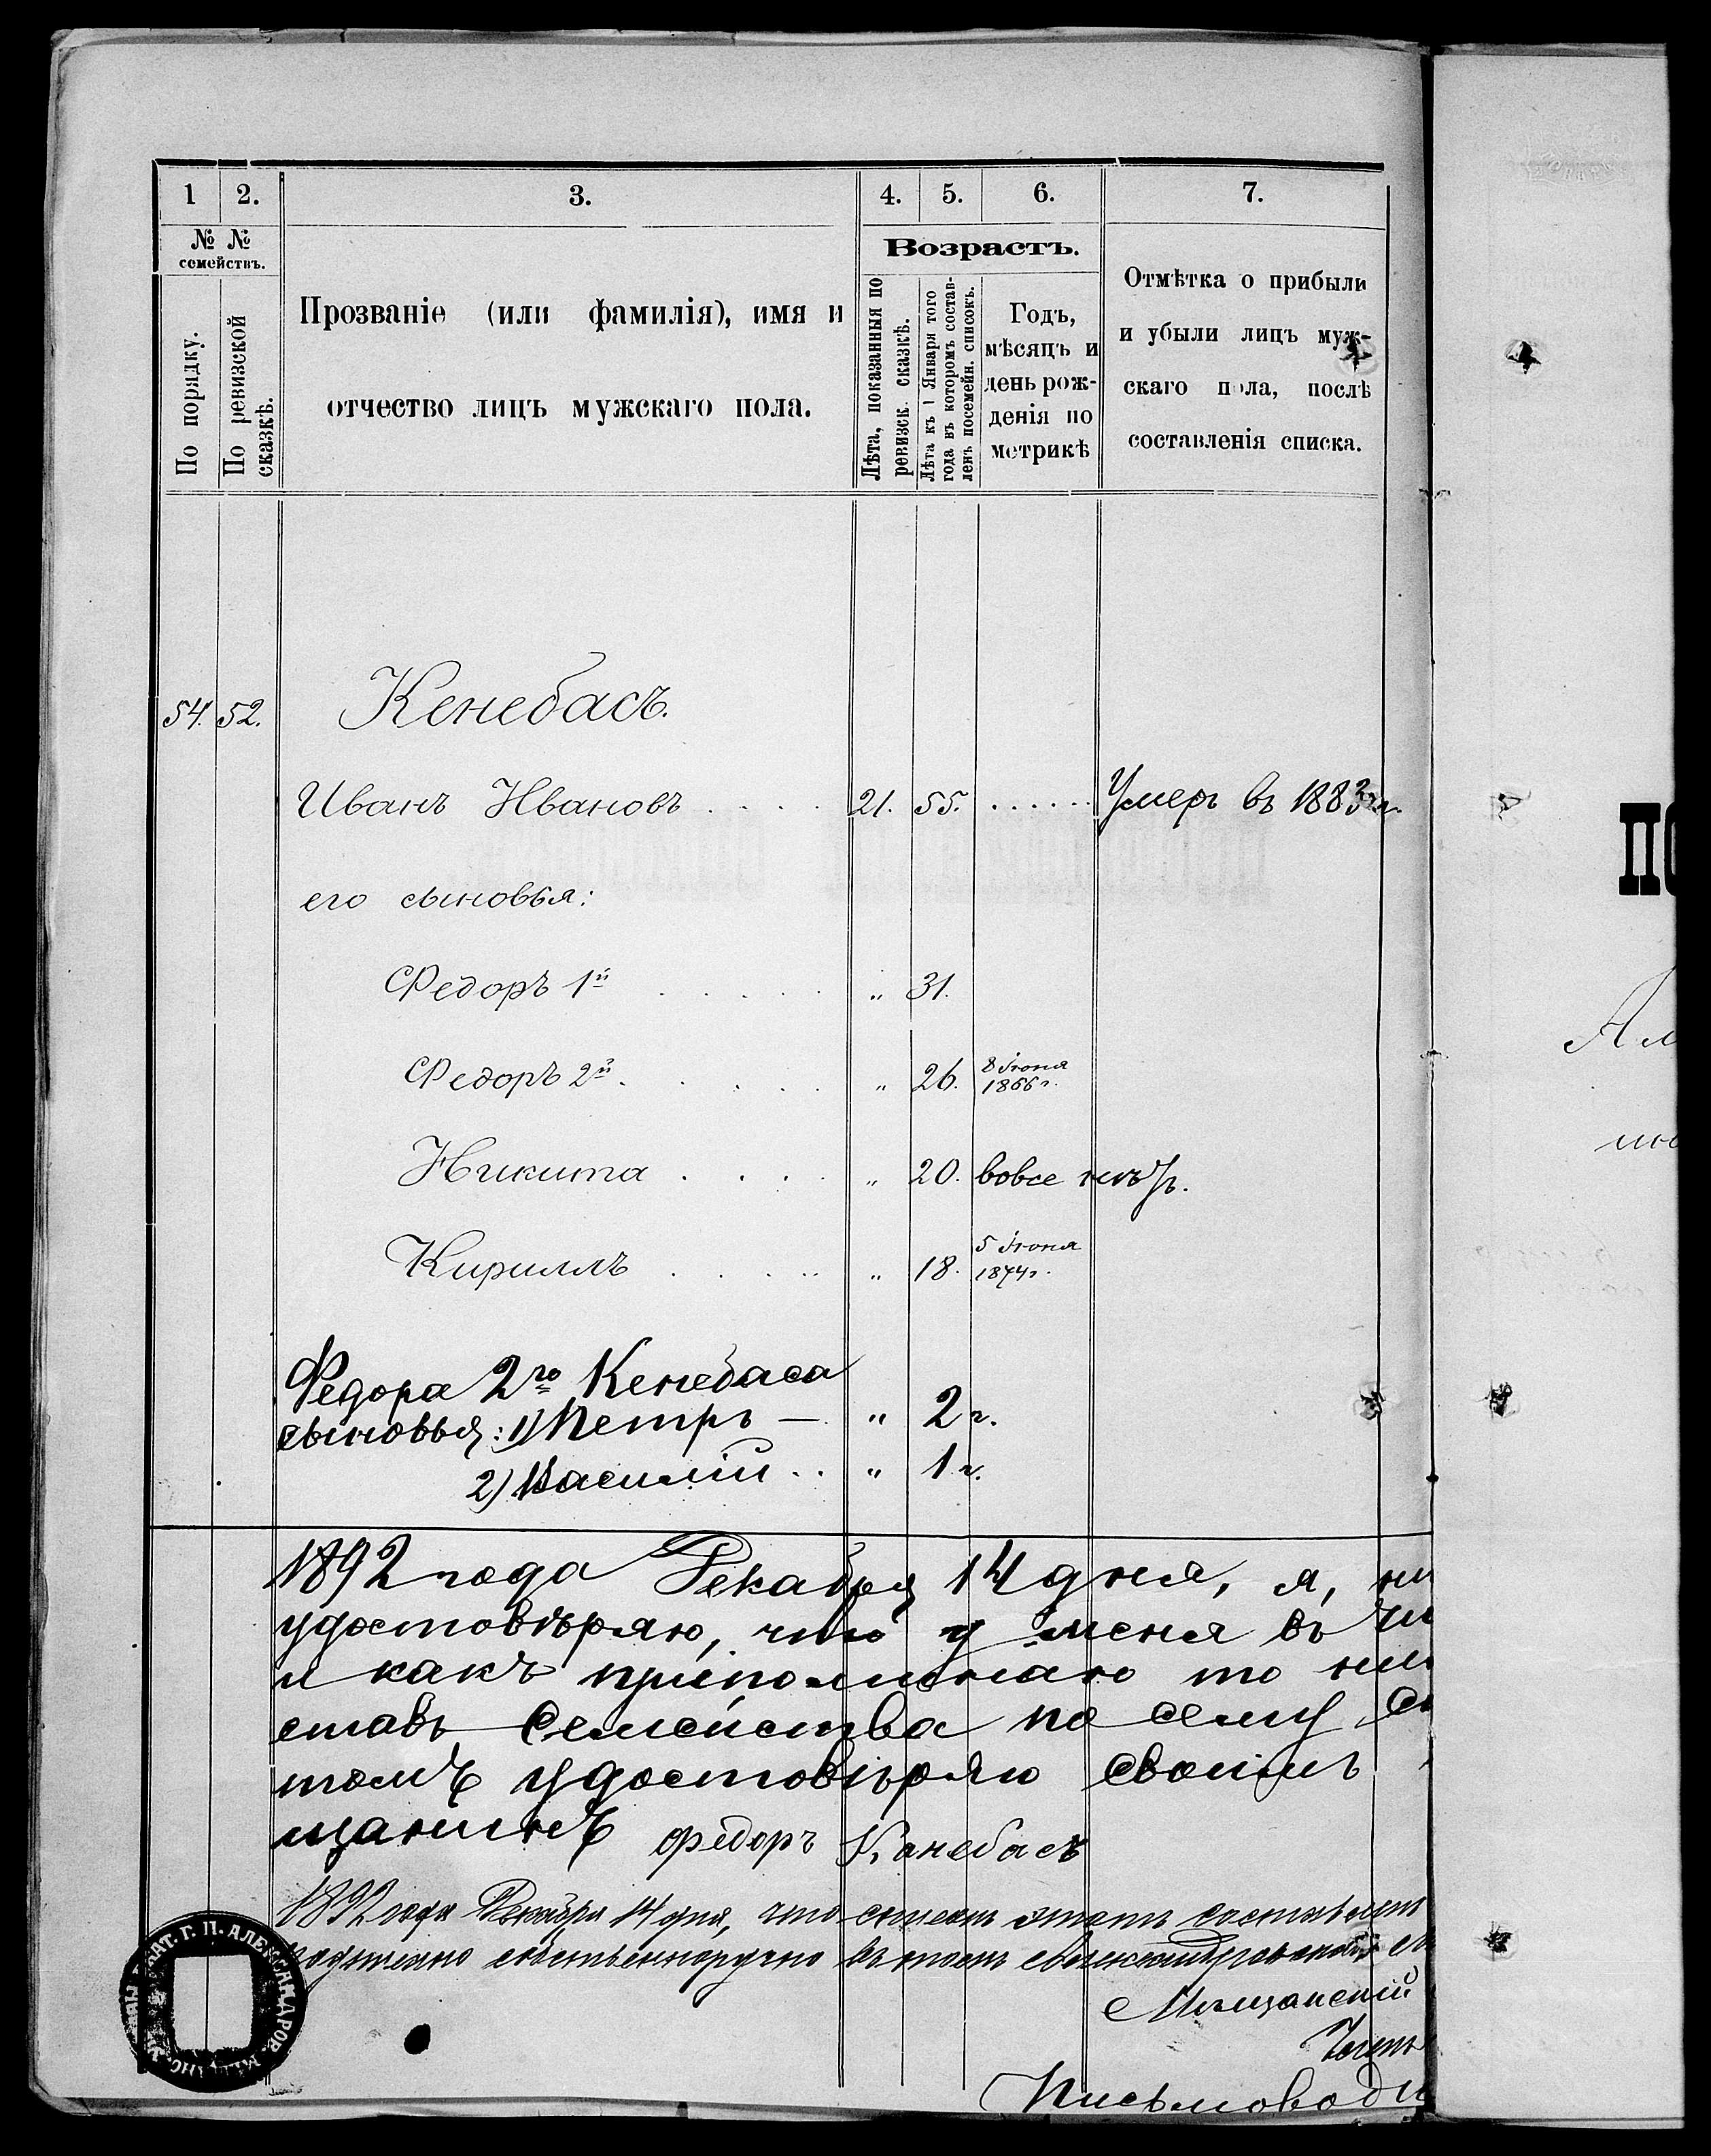 1 2. 3. 4. 5. 6. 7.
№ №
семействъ.
По порядку.
По ревизской
сказкѣ.
Прозваніе (или фамилія), имя и
отчество лицъ мужскаго пола.
Возрастъ.
Лѣта, показанныя по
ревизск. сказкѣ.
Лѣта къ 1 Января того
года въ которомъ состав-
ленъ посемейн. списокъ.
Годъ,
мѣсяцъ и
день рож-
денія по
метрикѣ
Отмѣтка о прибыли
и убыли лицъ муж-
скаго пола, послѣ
составленія списка.
54. 52. Кенебасъ.
Иванъ Ивановъ . . . . 21. 55. . . . . . . Умеръ въ 1883 г.
его сыновья:
Федоръ 1й . . . . . „ 31.
Федоръ 2й . . . . . „ 26. 8 Іюня
1866 г.
Никита . . . . „ 20. вовсе нѣтъ.
Кириллъ . . . . . „ 18. 5 Іюня
1874 г.
Федора 2го Кенебаса
сыновья: 1) Петръ — „ 2 г.
2) Василій . . „ 1 г.
1892 года Декабря 14 дня, я, ни
удостовѣряю, что у меня въ
и какъ припоминаю то
ставъ семейства по сему
томъ удостовѣряю своимъ
щанинъ Федоръ Канебасъ
1892 года Декабря 14 дня, что списокъ этотъ составленъ
подписано собственноручно въ томъ Александровский
Мѣщанскій
Письмоводи
АТ. Г. П. АЛЕКСАНДРОВ. МѢЩАНС.
ПО